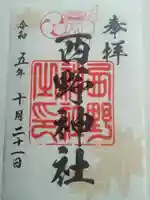 奉拝
西野神社
令和五年十月二十一日